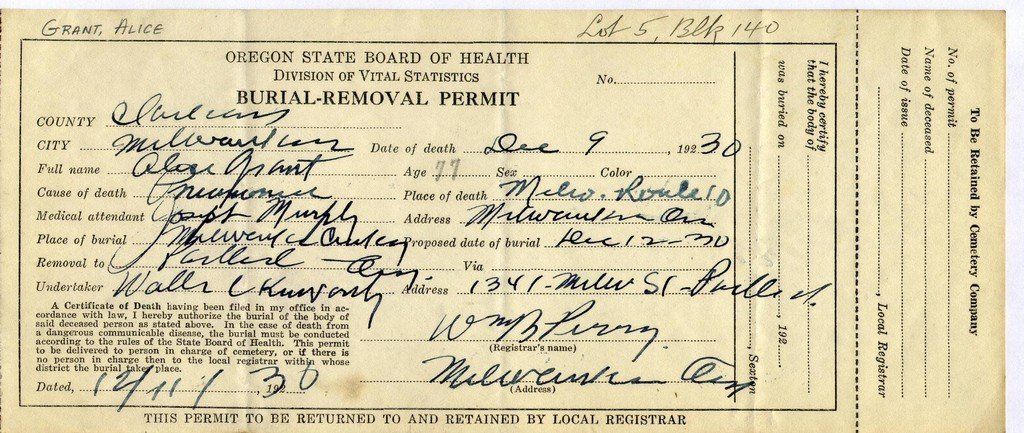 GRANT, ALICE
Lot 5, Blk 140
OREGON STATE BOARD OF HEALTH
DIVISION OF VITAL STATISTICS
No.
BURIAL-REMOVAL PERMIT
COUNTY Clackamas
CITY Milwaukie Date of death Dec 9, 192 30
Full name Alice Grant Age 77 Sex Color
Cause of death Pneumonia Place of death Milw. Route 10
Medical attendant Joseph Murphy Address Milwaukie Ore
Place of burial Milwaukie Cemetery Proposed date of burial Dec 12-30
Removal to Portland Ore. Via
Undertaker Address 1341 Milw St Portland.
A Certificate of Death having been filed in my office in ac-
cordance with law, I hereby authorize the burial of the body of
said deceased person as stated above. In the case of death from
a dangerous communicable disease, the burial must be conducted
according to the rules of the State Board of Health. This permit
to be delivered to person in charge of cemetery, or if there is
no person in charge then to the local registrar within whose
district the burial takes place.
Dated, 12/11/, 30
Wm B Perry
(Registrar's name)
Milwaukie Ore
(Address)
THIS PERMIT TO BE RETURNED TO AND RETAINED BY LOCAL REGISTRAR
I hereby certify
that the body of
was buried on , 192
, Sexton
To Be Retained by Cemetery Company
No. of permit
Name of deceased
Date of issue
, Local Registrar